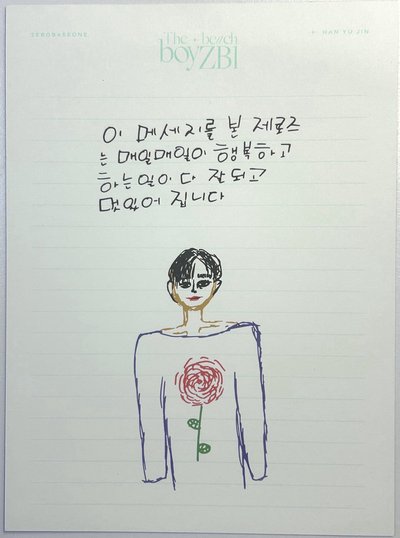 The beach
boyZB1
HAN YU JIN
이 메세지를 본 제로즈
는 매일매일이 행복하고
하는일이 다 잘되고
멋있어 집니다